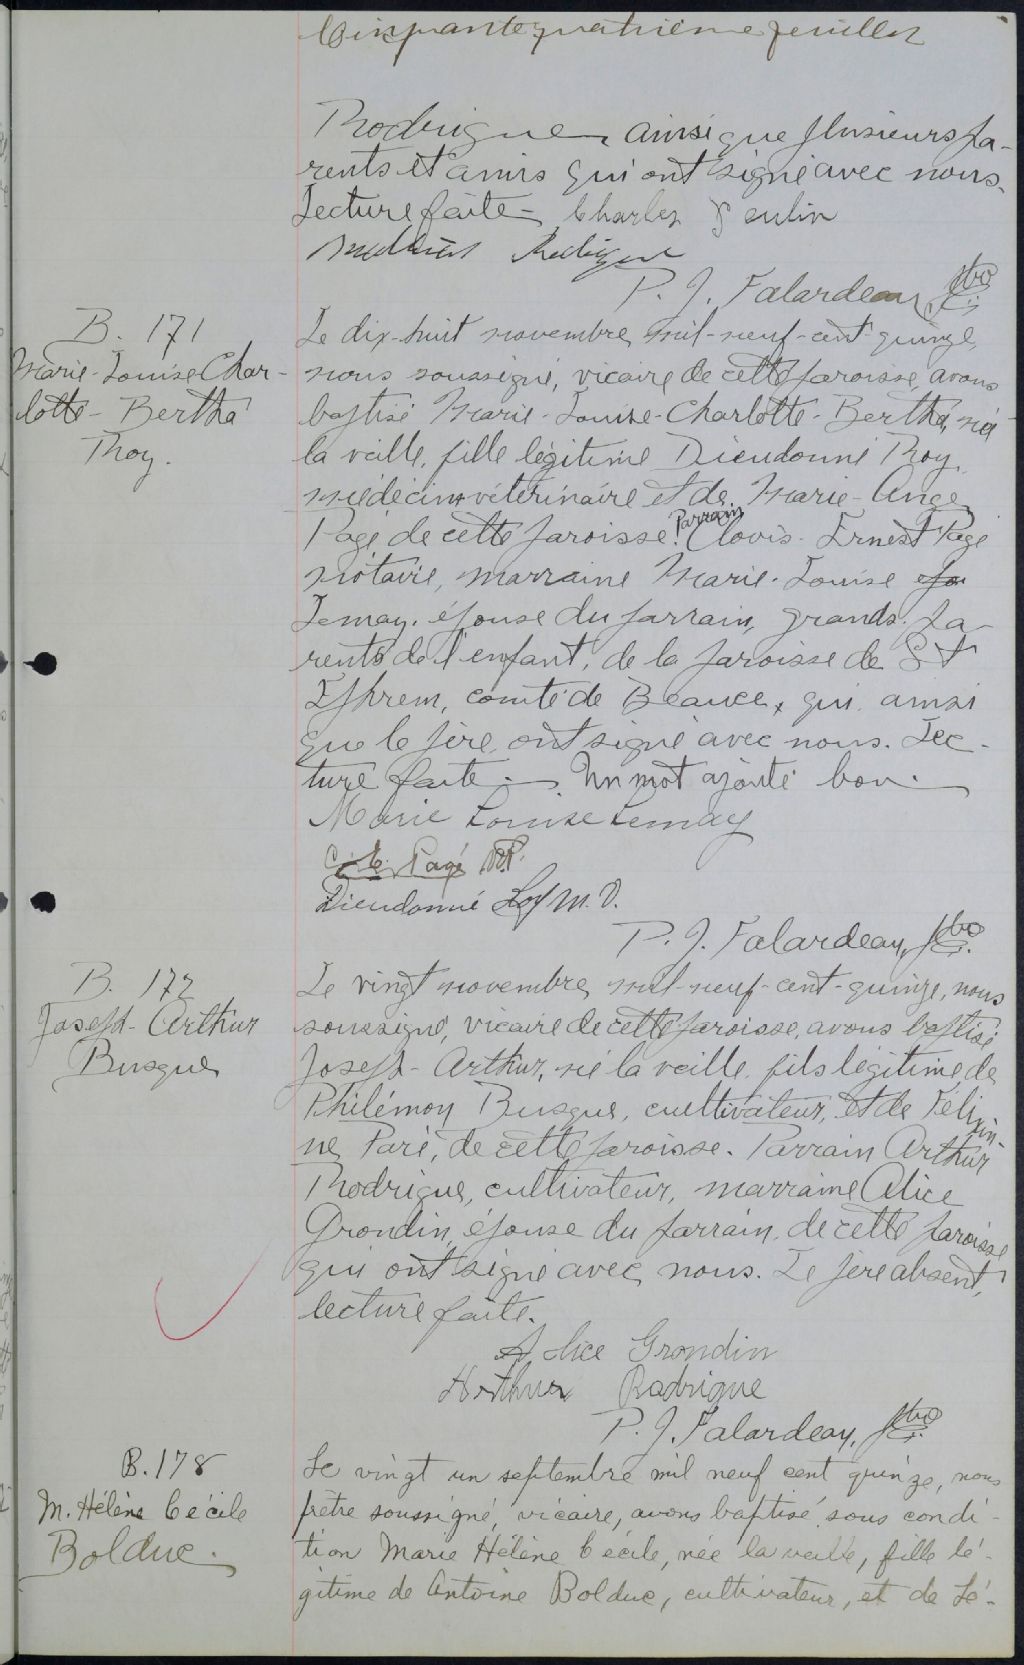 Cinquante quatrième feuillet
Rodrigue, ainsi que plusieurs pa-
rents et amis qui ont signé avec nous.
Lecture faite - Charles Poulin
Rodrigue
P. J. Falardeau, Ptre
B. 171
Marie-Louise Char-
lotte-Bertha
Roy.
Le dix-huit novembre, mil-neuf-cent-quinze,
nous soussigné, vicaire de cette paroisse, avons
baptisé Marie-Louise-Charlotte-Bertha, née
la veille, fille légitime Dieudonné Roy,
médecin vétérinaire et de Marie-Ange
Pagé de cette paroisse. Parrain Clovis-Ernest Pagé
notaire, marraine Marie-Louise
Lemay, épouse du parrain, grands-pa-
rents de l'enfant, de la paroisse de St
Ephrem, comté de Beauce, qui ainsi
que le père, ont signé avec nous. Lec-
ture faite - Un mot ajouté bon.
Marie Louise Lemay
C. E. Pagé N.P.
Dieudonné Roy M.V.
P. J. Falardeau, Ptre
B. 172
Joseph-Arthur
Busque
Le vingt novembre, mil-neuf-cent-quinze, nous
soussigné, vicaire de cette paroisse, avons baptisé
Joseph-Arthur, né la veille, fils légitime de
Philémon Busque, cultivateur, et de Félixin-
ne Paré, de cette paroisse. Parrain Arthur
Rodrigue, cultivateur, marraine Alice
Grondin, épouse du parrain, de cette paroisse
qui ont signé avec nous. Le père absent,
lecture faite.
Alice Grondin
Arthur Rodrigue
P. J. Falardeau, Ptre
B. 178
M. Hélène Cécile
Bolduc.
Le vingt un septembre mil neuf cent quinze, nous
prêtre soussigné, vicaire, avons baptisé sous condi-
tion Marie Hélène Cécile, née la veille, fille lé-
gitime de Antoine Bolduc, cultivateur, et de Lé-